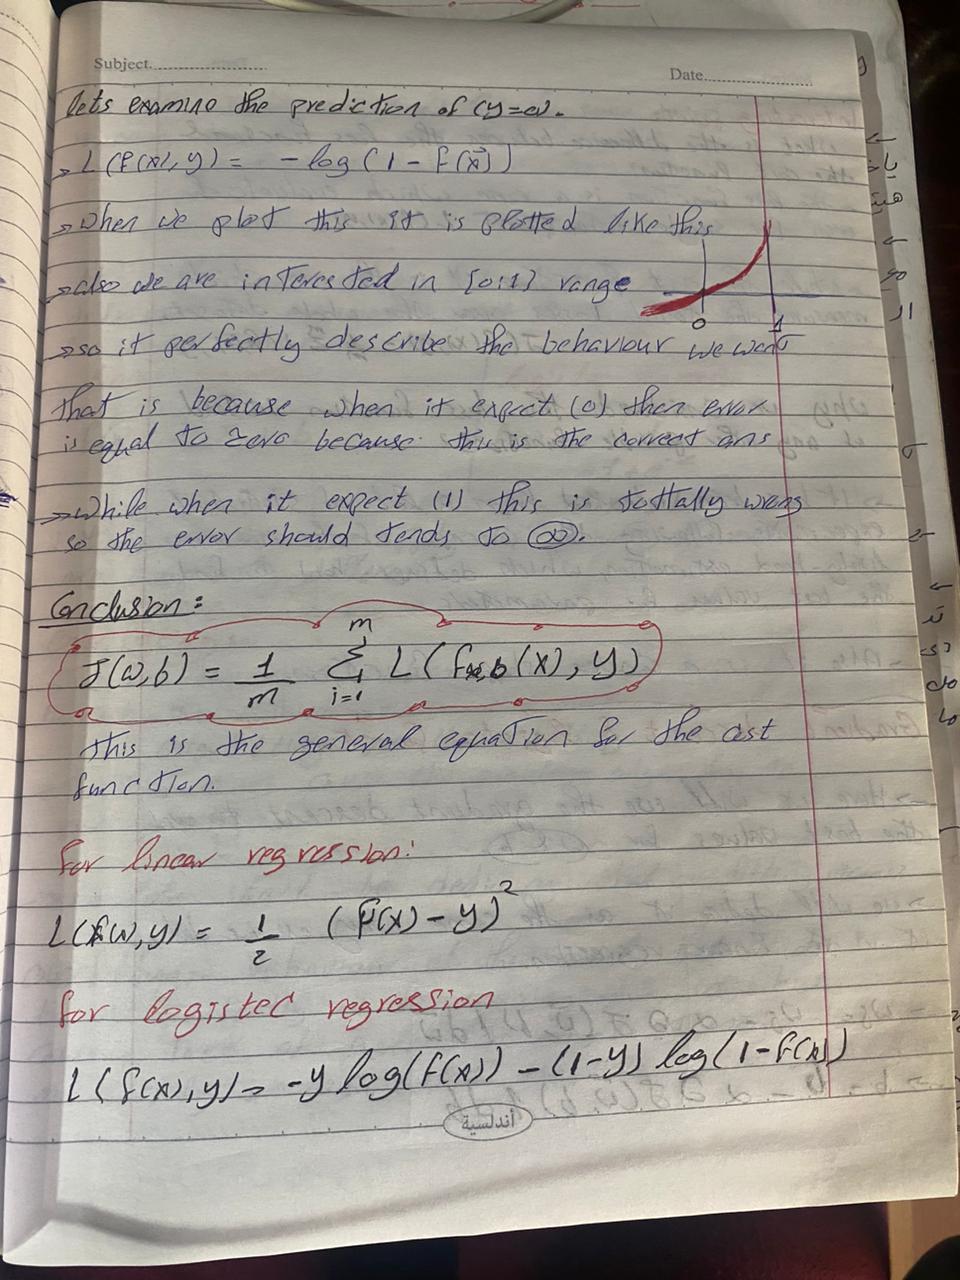 Subject.
Date.
lets examine the prediction of (y=0).
→ L(f(x), y) = -log(1 - f(x⃗))
→ when we plot this it is plotted like this
→ also we are interested in [0:1] range
0 1
→ so it perfectly describe the behaviour we want
that is because when it expect (0) then error
is equal to zero because this is the correct ans
→ while when it expect (1) this is tottally wrong
so the error should tends to ∞.
Conclusion:
J(w,b) = 1/m Σ_{i=1}^{m} L(f_{w,b}(x), y)
this is the general equation for the cost
function.
for linear regression:
L(f(x), y) = 1/2 (f(x) - y)²
for logistec regression
L(f(x), y) = -y log(f(x)) - (1-y) log(1-f(x))
أندلسية